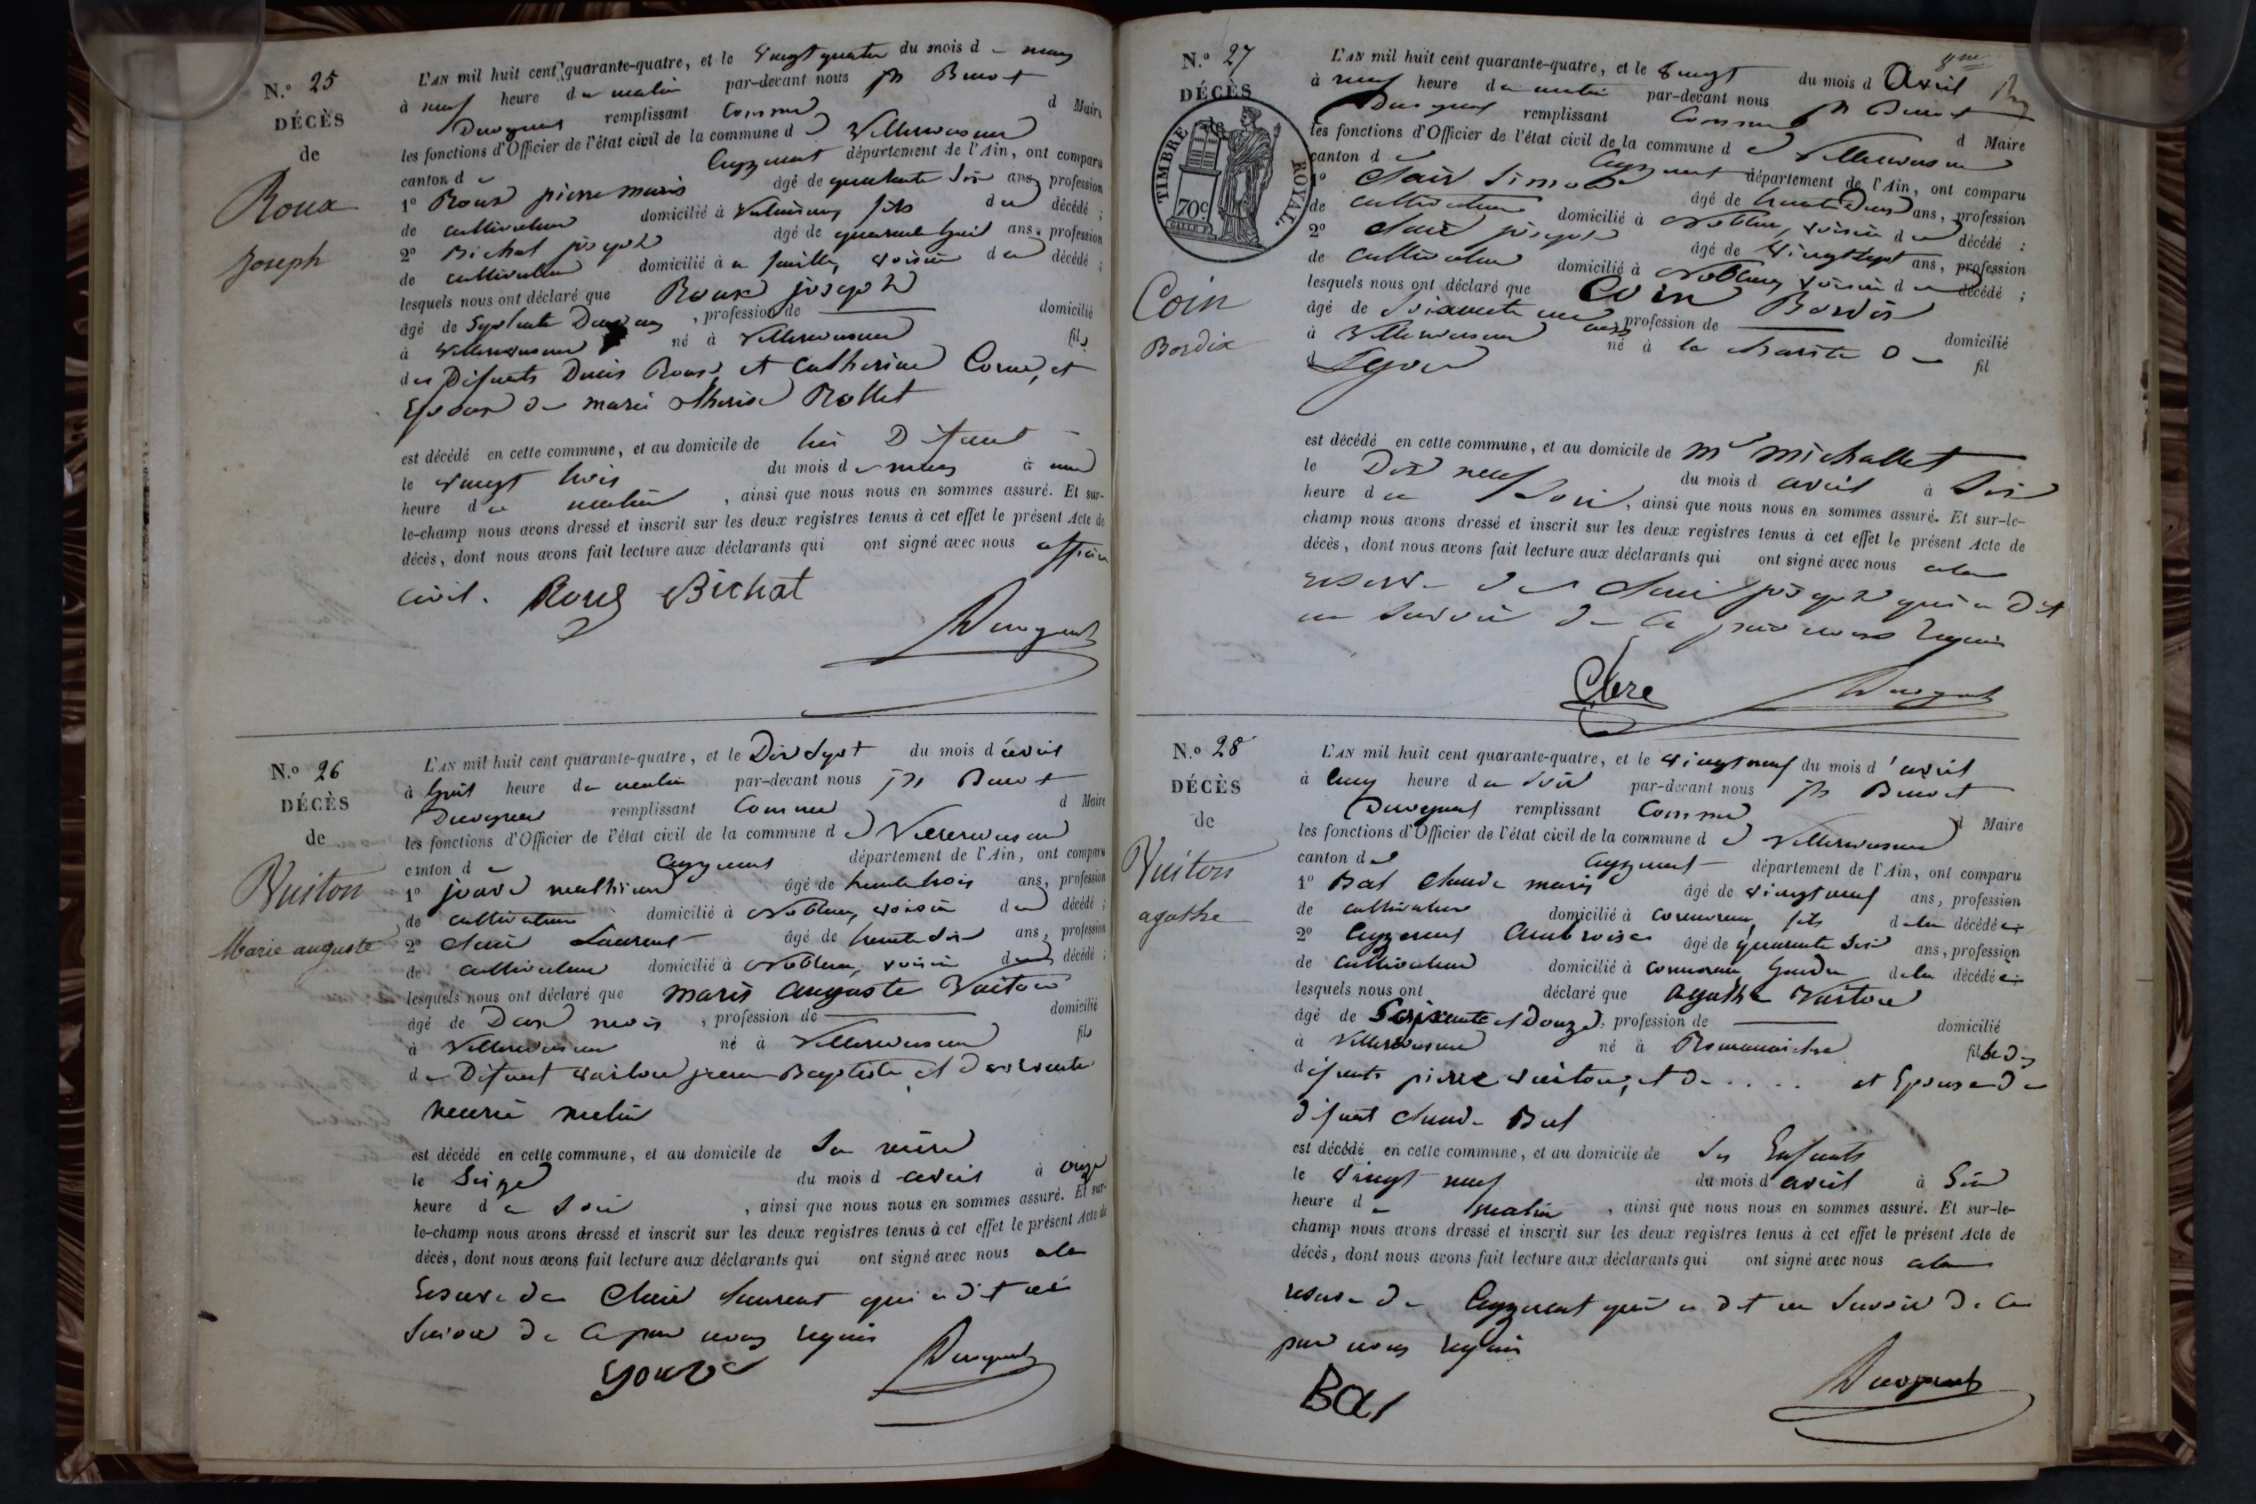 N.º 25
DÉCÈS
de
Roux
Joseph
L'AN mil huit cent quarante-quatre, et le vingt quatre du mois d mars
à neuf heure du matin par-devant nous Benoit
remplissant Comme d Maire
les fonctions d'Officier de l'état civil de la commune d Villereversure
canton d Ceyzeriat département de l'Ain, ont comparu
1º Roux pierre marie âgé de quarante six ans profession
de cultivateur domicilié à fils du décédé ;
2º Bichat joseph âgé de quarante huit ans, profession
de cultivateur domicilié à voisin du décédé ;
lesquels nous ont déclaré que Roux joseph
âgé de Septante Deux ans, profession de domicilié
à Villereversure né à Villereversure fils
des Défunts Denis Roux et Catherine et
Epoux de marie therese Rollet
est décédé en cette commune, et au domicile de lui Défunt
le vingt trois du mois de mars à une
heure du matin, ainsi que nous nous en sommes assuré. Et sur-
le-champ nous avons dressé et inscrit sur les deux registres tenus à cet effet le présent Acte de
décès, dont nous avons fait lecture aux déclarants qui ont signé avec nous officier
civil. Roux Bichat
N.º 26
DÉCÈS
de
Vuiton
Marie auguste
L'AN mil huit cent quarante-quatre, et le Dix Sept du mois d'avril
à huit heure du matin par-devant nous Benoit
remplissant Comme d Maire
les fonctions d'Officier de l'état civil de la commune de Villereversure
canton d Ceyzeriat département de l'Ain, ont comparu
1º mathieu âgé de trente trois ans, profession
de cultivateur domicilié à Noblens, voisin du décédé ;
2º Laurent âgé de trente six ans, profession
de cultivateur domicilié à Noblens, voisin du décédé ;
lesquels nous ont déclaré que marie auguste Vuiton
âgé de Deux mois, profession de domicilié
à Villereversure né à Villereversure fils
de Défunt Vuiton jean Baptiste, et de vivante
melin
est décédé en cette commune, et au domicile de Sa mère
le Seize du mois d avril à onze
heure du Soir, ainsi que nous nous en sommes assuré. Et sur-
le-champ nous avons dressé et inscrit sur les deux registres tenus à cet effet le présent Acte de
décès, dont nous avons fait lecture aux déclarants qui ont signé avec nous a la
reserve de Laurent qui a dit ne
Savoir de ce par nous requis
N.º 27
DÉCÈS
de
TIMBRE ROYAL
70c
Coin
Bordix
L'AN mil huit cent quarante-quatre, et le vingt du mois d Avril
à neuf heure du matin par-devant nous Benoit
remplissant Comme d Maire
les fonctions d'Officier de l'état civil de la commune de Villereversure
canton d Ceyzeriat département de l'Ain, ont comparu
1º âgé de trente Deux ans, profession
de cultivateur domicilié à Noblens, voisin du décédé ;
2º joseph âgé de vingt Sept ans, profession
de cultivateur domicilié à Noblens voisin du décédé ;
lesquels nous ont déclaré que Coin Bordix
âgé de Soixante ans profession de domicilié
à Villereversure né à la charité de fil
Lyon
est décédé en cette commune, et au domicile de Mr Michallet
le Dix neuf du mois d avril à Six
heure du Soir, ainsi que nous nous en sommes assuré. Et sur-le-
champ nous avons dressé et inscrit sur les deux registres tenus à cet effet le présent Acte de
décès, dont nous avons fait lecture aux déclarants qui ont signé avec nous a la
reserve de joseph qui a Dit
ne Savoir de ce par nous requis
Clere
N.º 28
DÉCÈS
de
Vuiton
agathe
L'AN mil huit cent quarante-quatre, et le vingt neuf du mois d'avril
à cinq heure du Soir par-devant nous Benoit
remplissant Comme d Maire
les fonctions d'Officier de l'état civil de la commune de Villereversure
canton de Ceyzeriat département de l'Ain, ont comparu
1º Bal Claude marie âgé de vingt neuf ans, profession
de cultivateur domicilié à fils de la décédée
2º Ceyzeriat Ambroise âgé de quarante Six ans, profession
de cultivateur domicilié à Gendre de la décédée
lesquels nous ont déclaré que Agathe Vuiton
âgé de Soixante et Douze, profession de domicilié
à Villereversure né à fille de
défunts pierre Vuiton, et de . . . . . et Epouse de
défunt Claude Bal
est décédé en cette commune, et au domicile de Ses Enfants
le vingt neuf du mois d'avril à Six
heure d matin, ainsi que nous nous en sommes assuré. Et sur-le-
champ nous avons dressé et inscrit sur les deux registres tenus à cet effet le présent Acte de
décès, dont nous avons fait lecture aux déclarants qui ont signé avec nous a la
reserve de Ceyzeriat qui a dit ne Savoir de ce
par nous requis
Bal